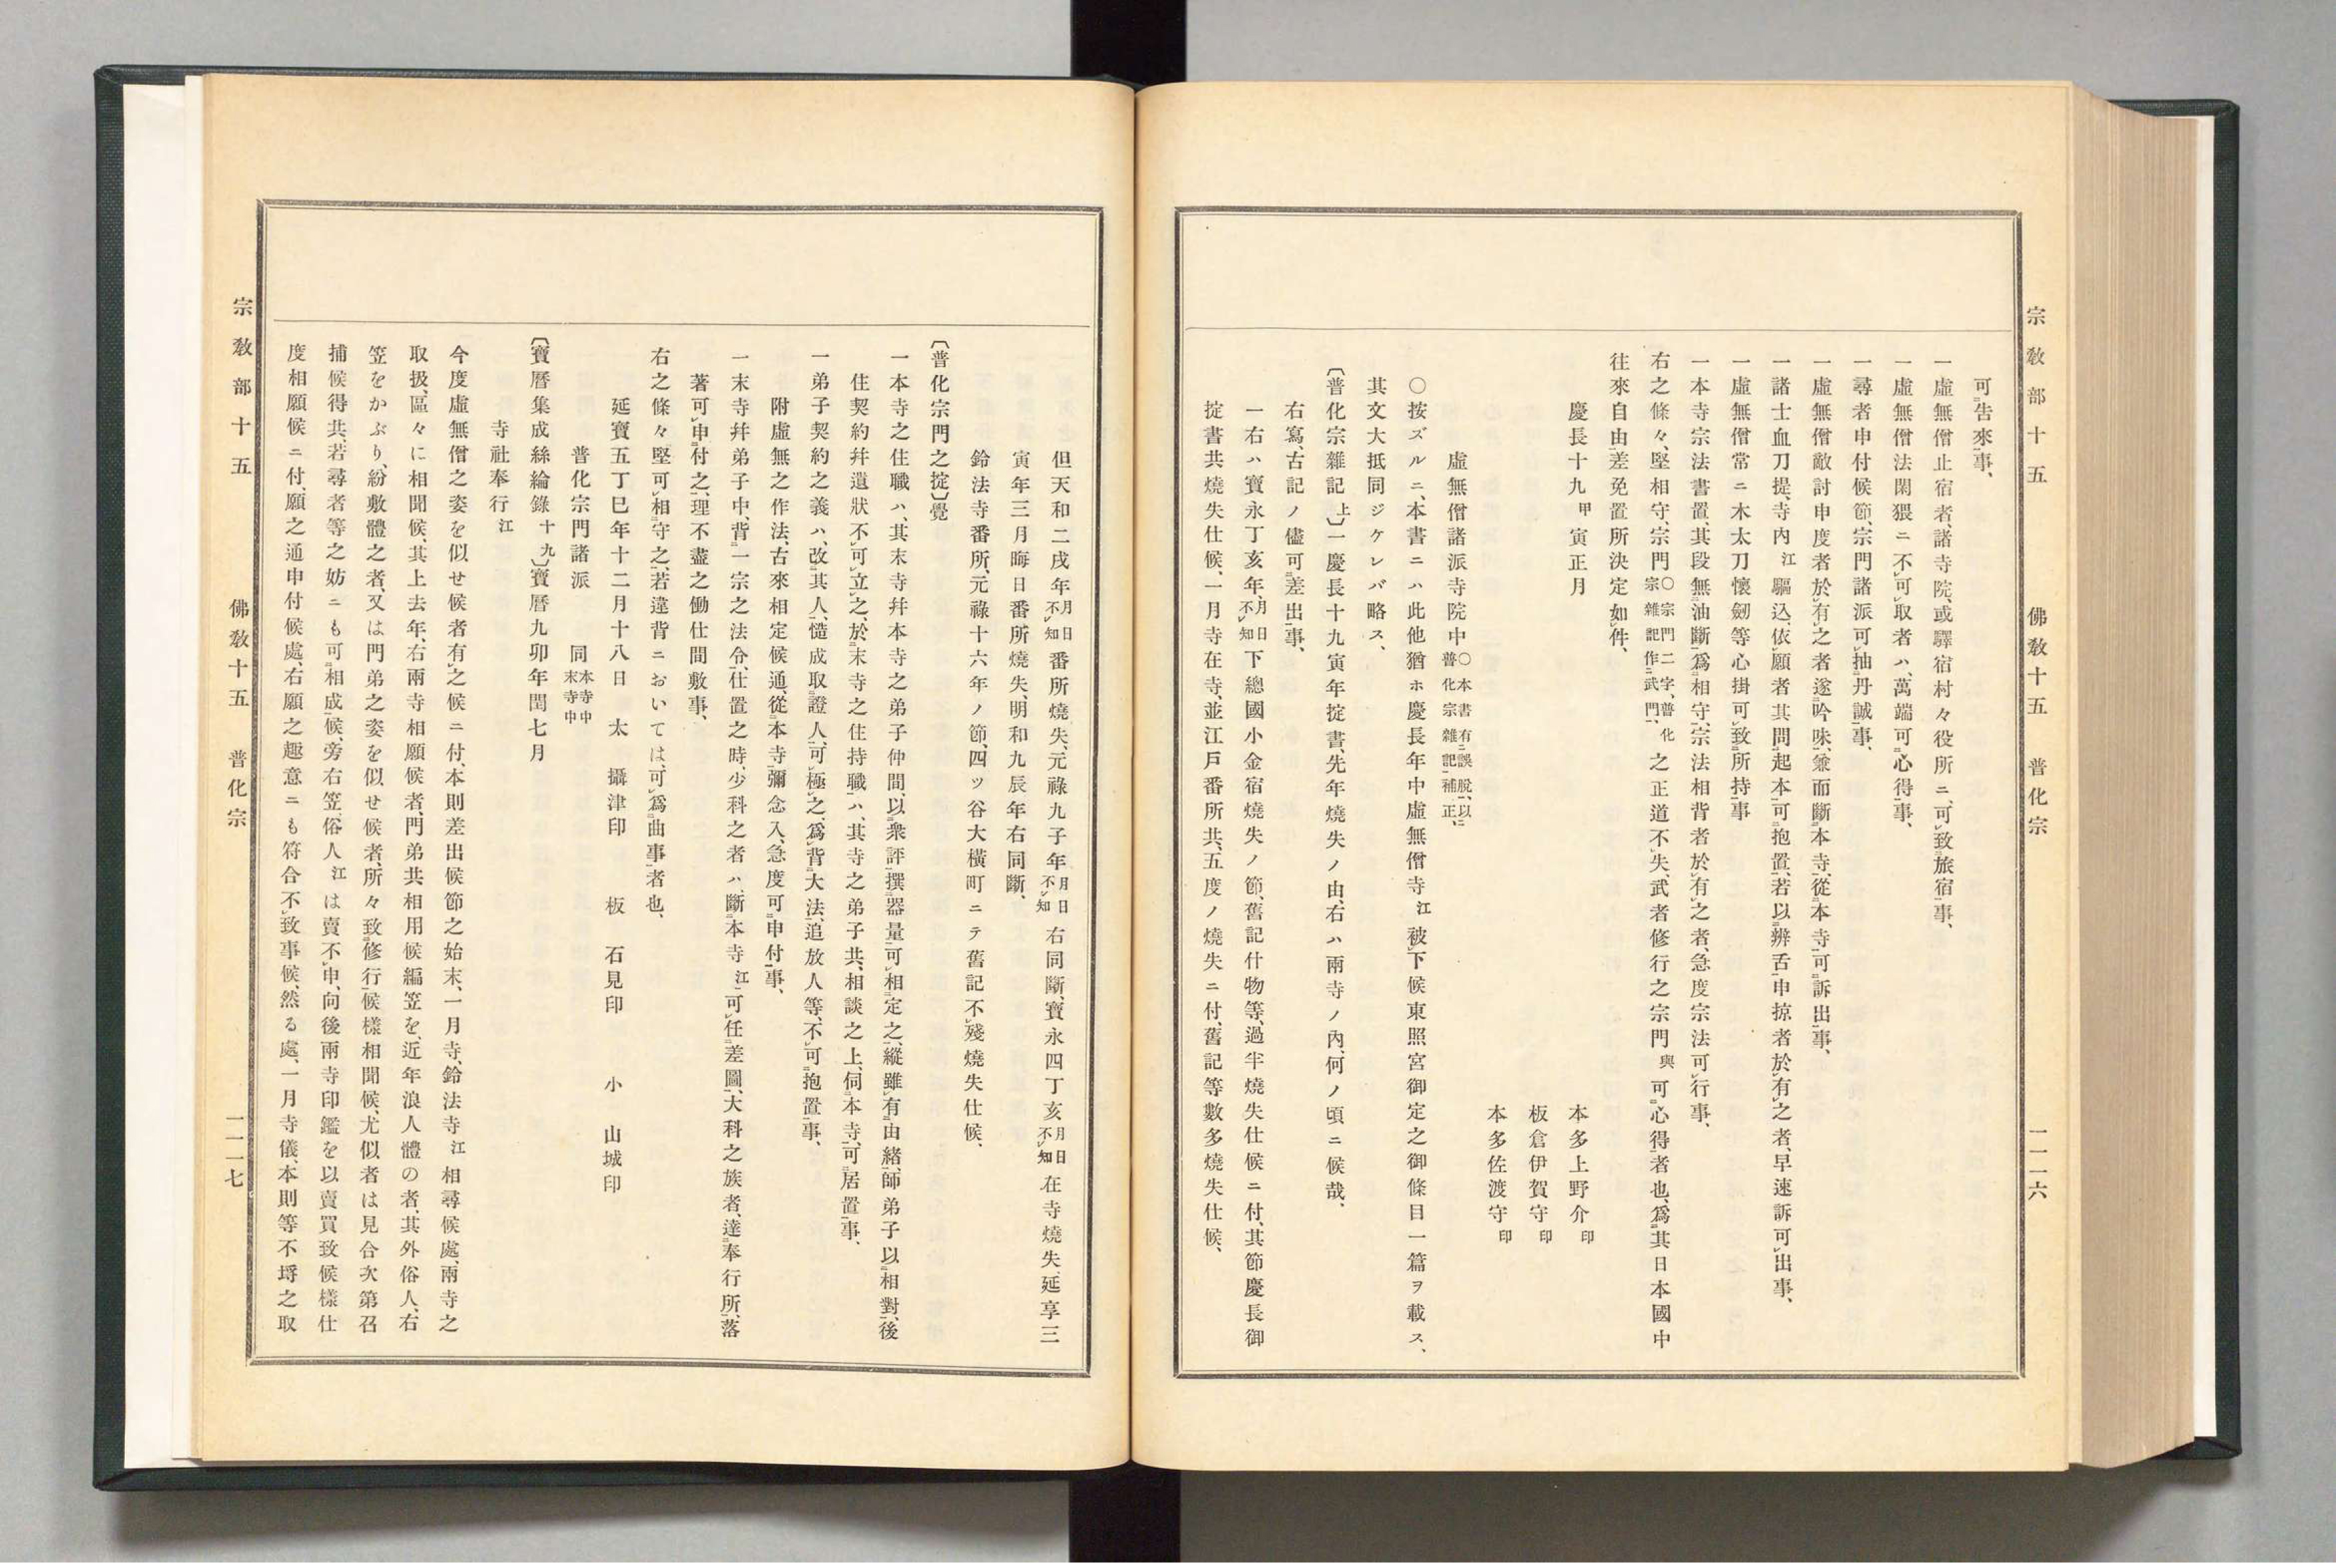 宗教部十五　佛教十五　普化宗　一一一六
可㆓告來㆒事、
一虛無僧止宿者、諸寺院、或驛宿村々役所ニ、可㆑致㆓旅宿㆒事、
一虛無僧法閑猥ニ不㆑可㆑取者ハ、萬端可㆓心得㆒事、
尋者申付候節、宗門諸派可㆑抽㆓丹誠㆒事、
一虛無僧敵討申度者於㆑有㆑之者、遂㆓吟味㆒、兼而斷㆓本寺㆒、從㆓本寺㆒可㆓訴出㆒事、
諸士血刀提、寺內江驅込、依㆑願者其問㆓起本㆒、可㆓抱置㆒、若以㆓辨舌㆒申掠者於㆑有㆑之者、早速訴可㆑出事、
一虛無僧常ニ木太刀懷劒等心掛可㆑致㆓所持㆒事
一本寺宗法書置、其段無㆓油斷㆒爲㆓相守㆒、宗法相背者於㆑有㆑之者、急度宗法可㆑行事、
右之條々、堅相守、宗門〇宗門二字、普化宗雜記作㆓武門㆒、之正道不㆑失、武者修行之宗門與可㆓心得㆒者也、爲㆑其日本國中
往來自由㆓差免置所決定如㆑件、
慶長十九甲寅正月
本多上野介印
板倉伊賀守印
本多佐渡守印
虛無僧諸派寺院中〇本書有㆓誤脫㆒、以㆓普化宗雜記㆒補正、
〇按ズルニ、本書ニハ此他猶ホ慶長年中虛無僧寺江被㆑下候東照宮御定之御條目一篇ヲ載ス、
其文大抵同ジケレバ略ス、
〔普化宗雜記上〕一慶長十九寅年掟書、先年燒失ノ由、右ハ兩寺ノ內、何ノ頃ニ候哉、
右寫、古記ノ儘可㆓差出㆒事、
一右ハ寶永丁亥年、月日不㆑知下總國小金宿燒失ノ節、舊記什物等、過半燒失仕候ニ付、其節慶長御
掟書共燒失仕候、一月寺在寺、並江戶番所共、五度ノ燒失ニ付、舊記等數多燒失仕候、
但天和二戌年月日不㆑知番所燒失、元祿九子年月日不㆑知右同斷、寶永四丁亥月日不㆑知在寺燒失、延享三
寅年三月晦日番所燒失、明和九辰年右同斷、
鈴法寺番所、元祿十六年ノ節、四ッ谷大橫町ニテ舊記不㆑殘燒失仕候、
〔普化宗門之掟〕覺
一本寺之住職ハ、其末寺幷本寺之弟子仲間、以㆓衆評㆒撰㆓器量㆒、可㆓相定㆒之、縱雖㆑有㆓由緖㆒、師弟子以㆓相對㆒、後
住契約幷遺狀不㆑可㆑立㆑之、於㆓末寺之住持職㆒ハ、其寺之弟子共、相談之上、伺㆓本寺㆒、可㆓居置㆒事、
一弟子契約之義ハ、改㆓其人㆒、慥成取㆓證人㆒、可㆑極㆑之、爲㆑背㆓大法㆒、追放人等、不㆑可㆓抱置㆒事、
附虛無之作法、古來相定候通、從㆓本寺㆒彌念入、急度可㆓申付㆒事、
一末寺幷弟子中、背㆓一宗之法令㆒、仕置之時、少科之者ハ、斷㆓本寺江㆒可㆑任㆓差圖㆒、大科之族者、達㆓奉行所㆒、落
著可㆑申㆓付之㆒、理不盡之働仕間敷事、
右之條々堅可㆑相㆓守之㆒、若違背ニおいては、可㆑爲㆓曲事㆒者也、
延寶五丁巳年十二月十八日　太　攝津印　板　石見印　小　山城印
普化宗門諸派　同本寺中末寺中
〔寶曆集成絲綸錄十九〕寶曆九卯年閏七月
寺社奉行江
今度虛無僧之姿を似せ候者有㆑之候ニ付、本則差出候節之始末、一月寺、鈴法寺江相尋候處、兩寺之
取扱、區々に相聞候、其上去年、右兩寺相願候者、門弟共相用候編笠を、近年浪人體の者、其外俗人、右
笠をかぶり、紛敷體之者、又は門弟之姿を似せ候者、所々致㆓修行㆒候樣相聞候、尤似者は見合次第召
捕候得共、若尋者等之妨ニも可㆓相成㆒候、旁右笠、俗人江は賣不㆑申、向後兩寺印鑑を以賣買致候樣仕
度相願候ニ付、願之通申付候處、右願之趣意ニも符合不㆑致事候、然る處、一月寺儀、本則等不埒之取
宗教部十五　佛教十五　普化宗　一一一七